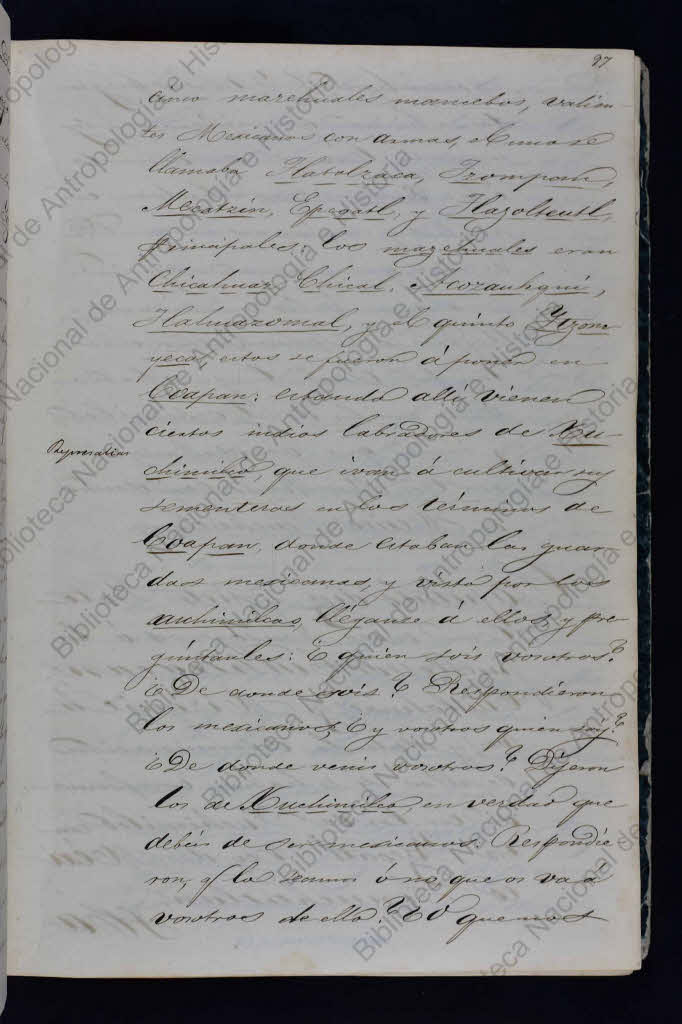 97.
cinco mazehuales mancebos, valien-
tes Mexicanos con armas, el uno se
llamaba Tlatolzaca, Tzompan,
Mecatzin, Epcoatl, y Tlazolteutl,
principales: los mazehuales eran
Chicahuaz, Chical, Acozauhqui,
Tlahuazomal, y el quinto
yecal, estos se fueron á poner en
Coapan: estando allí vienen
ciertos indios labradores de Xu-
chimilco, que ivan á cultivar sus
sementeras en los términos de
Coapan, donde estaban las guar-
das mexicanas, y visto por los
xuchimilcas, lléganse á ellos y pre-
gúntanles: ¿quién sois vosotros?
¿De donde sois? Respondieron
los mexicanos, ¿y vosotros quien soy?
¿De donde venis vosotros? Dijeron
los de Xuchimilco, en verdad que
debeis de ser mexicanos. Respondie-
ron, si lo semos ó no, que os va a
vosotros de ello? O que mas
Represalias
Biblioteca Nacional de Antropología e Historia